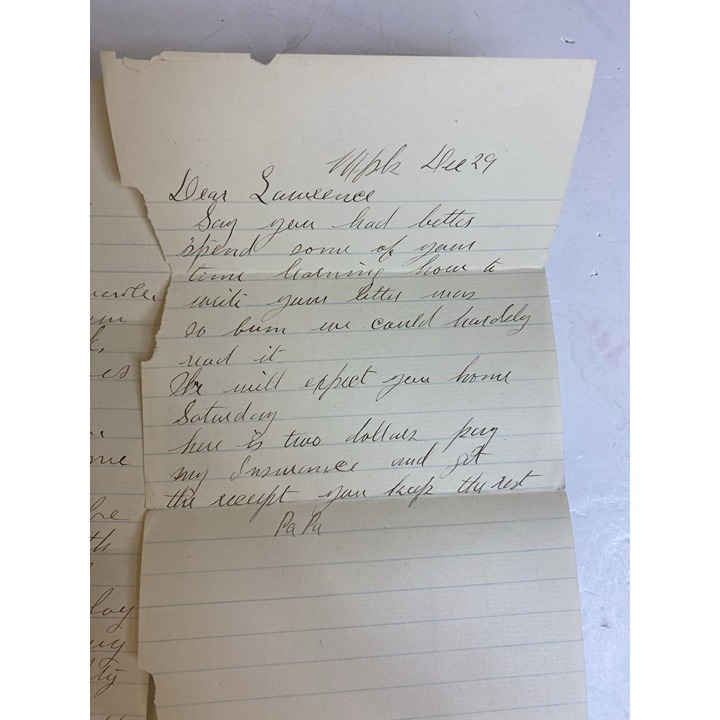 Dec 29
Dear Lawrence
Say you had better
spend some of your
time learning how to
write your letter was
so bum we could hardely
read it
will expect you home
Saturday
here is two dollars pay
my Insurance and get
the receipt you keep the rest
PaPa
es
me
th
lay
ty